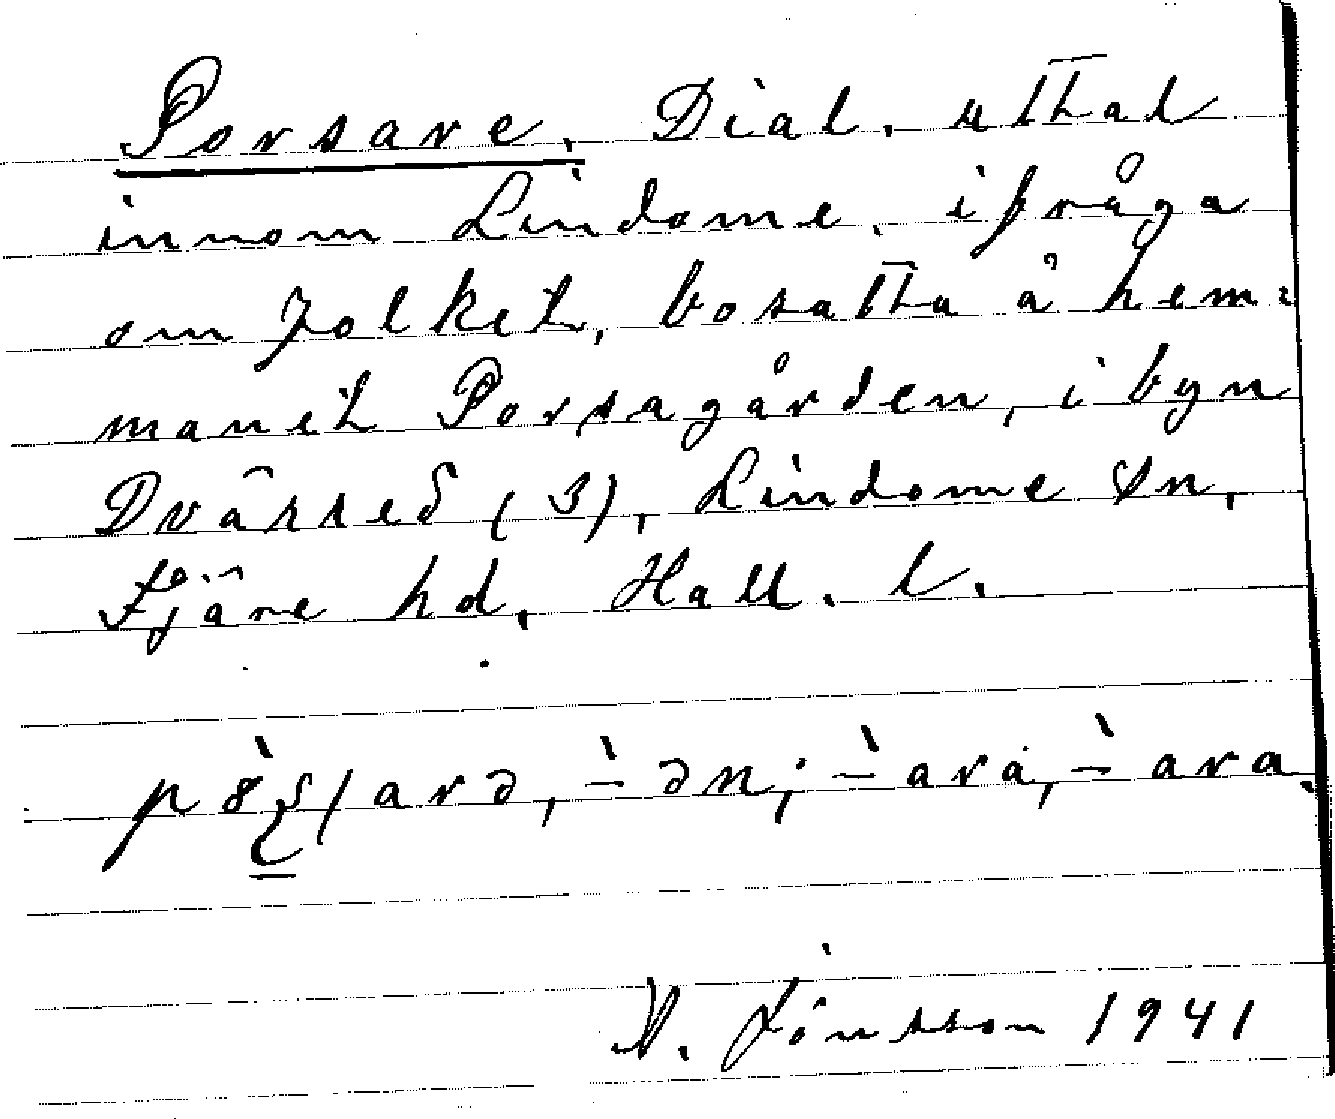 Porsare. Dial. uttal
innom Lindome, ifråga
om folket, bosatta å hem-
manet Porsagården, i byn
Dvärred (3), Lindome Sn,
Fjäre hd, Hall. l.
N. Jönsson 1941